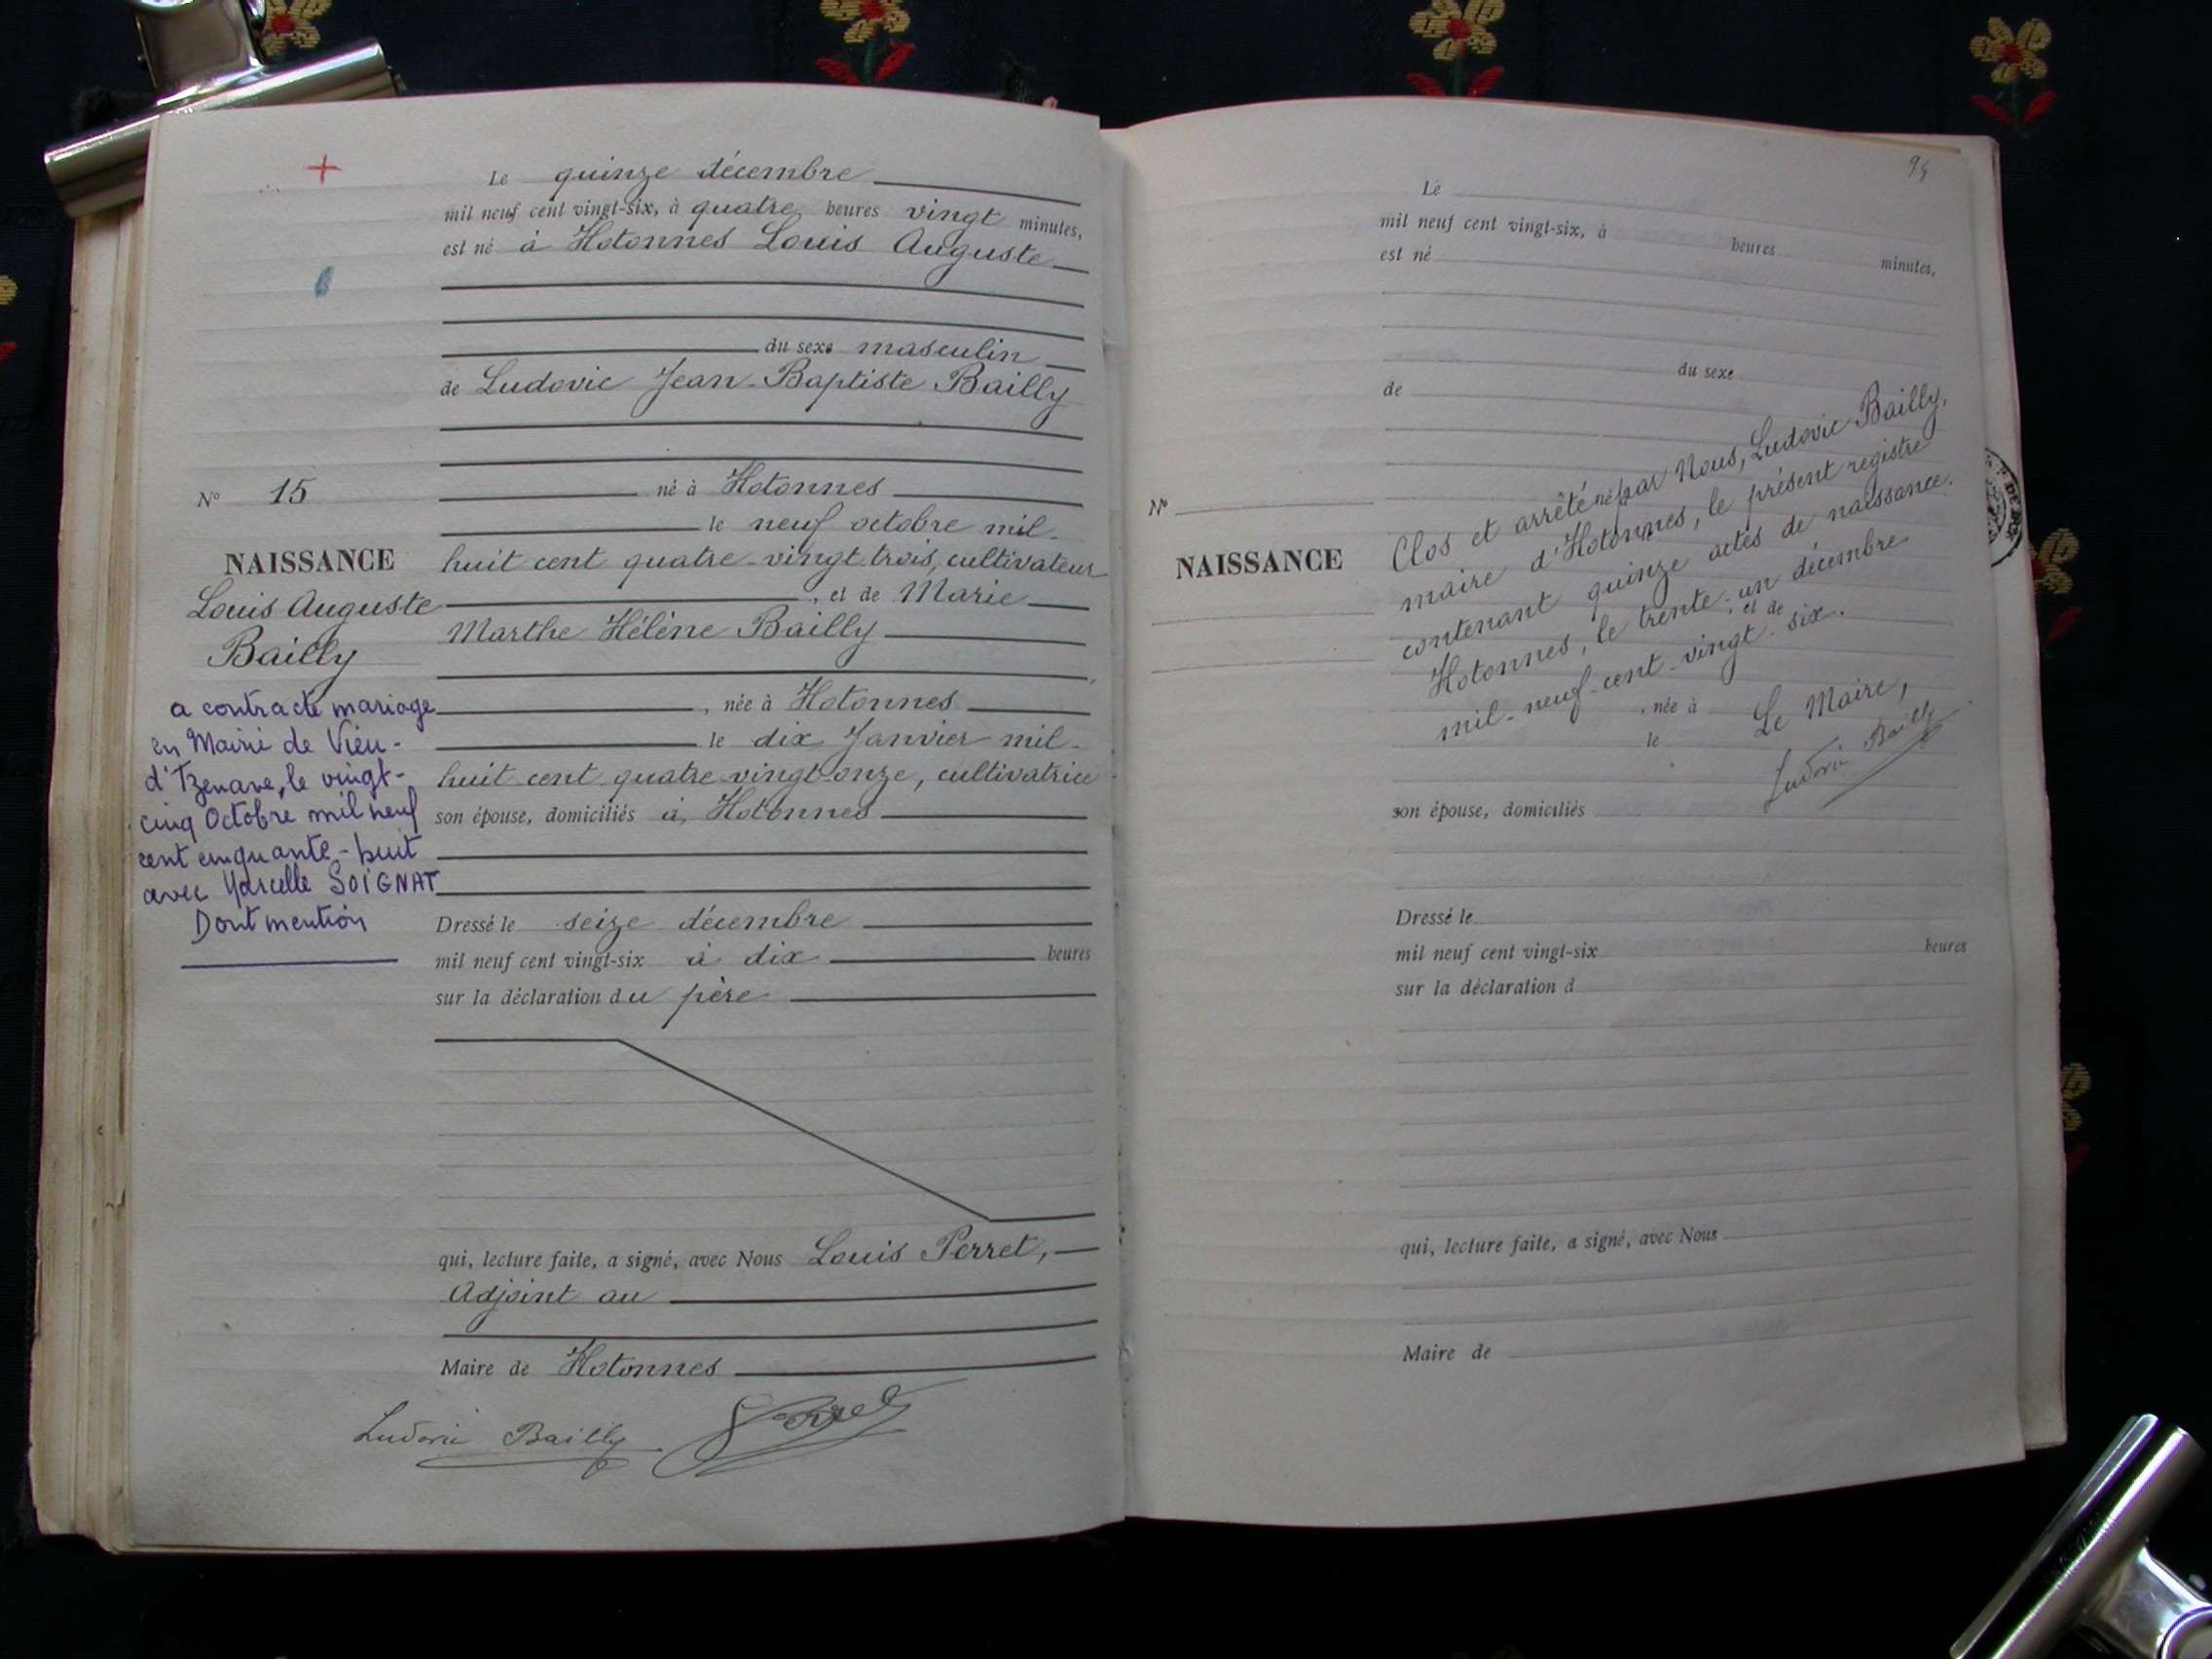 Le quinze décembre
mil neuf cent vingt-six, à quatre heures vingt minutes,
est né à Hotonnes Louis Auguste
du sexe masculin
de Ludovic Jean-Baptiste Bailly
né à Hotonnes
le neuf octobre mil-
huit cent quatre-vingt-trois, cultivateur
, et de Marie
Marthe Hélène Bailly
, née à Hotonnes
le dix Janvier mil-
huit cent quatre-vingt-onze, cultivatrice
son épouse, domiciliés à Hotonnes
Dressé le seize décembre
mil neuf cent vingt-six à dix heures
sur la déclaration du père
qui, lecture faite, a signé, avec Nous Louis Perret,
Adjoint au
Maire de Hotonnes
Ludovic Bailly Perret
N° 15
NAISSANCE
Louis Auguste
Bailly
a contracté mariage
en Mairie de Vieu-
d'Izenave, le vingt-
cinq Octobre mil neuf
cent cinquante-huit
avec Marcelle SOIGNAT
Dont mention
94
Le
mil neuf cent vingt-six, à heures minutes,
est né
du sexe
de
né à
le
, et de
, née à
le
son épouse, domiciliés
Dressé le
mil neuf cent vingt-six heures
sur la déclaration d
qui, lecture faite, a signé, avec Nous
Maire de
N°
NAISSANCE
Clos et arrêté par Nous, Ludovic Bailly,
maire d'Hotonnes, le présent registre
contenant quinze actes de naissance.
Hotonnes, le trente-un décembre
mil-neuf-cent-vingt-six.
Le Maire,
Ludovic Bailly